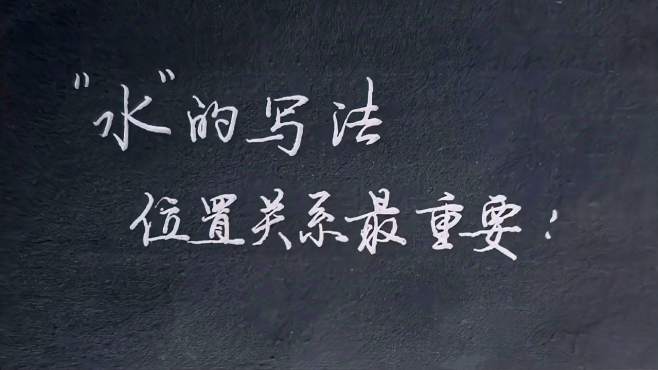 “水”的写法
位置关系最重要！